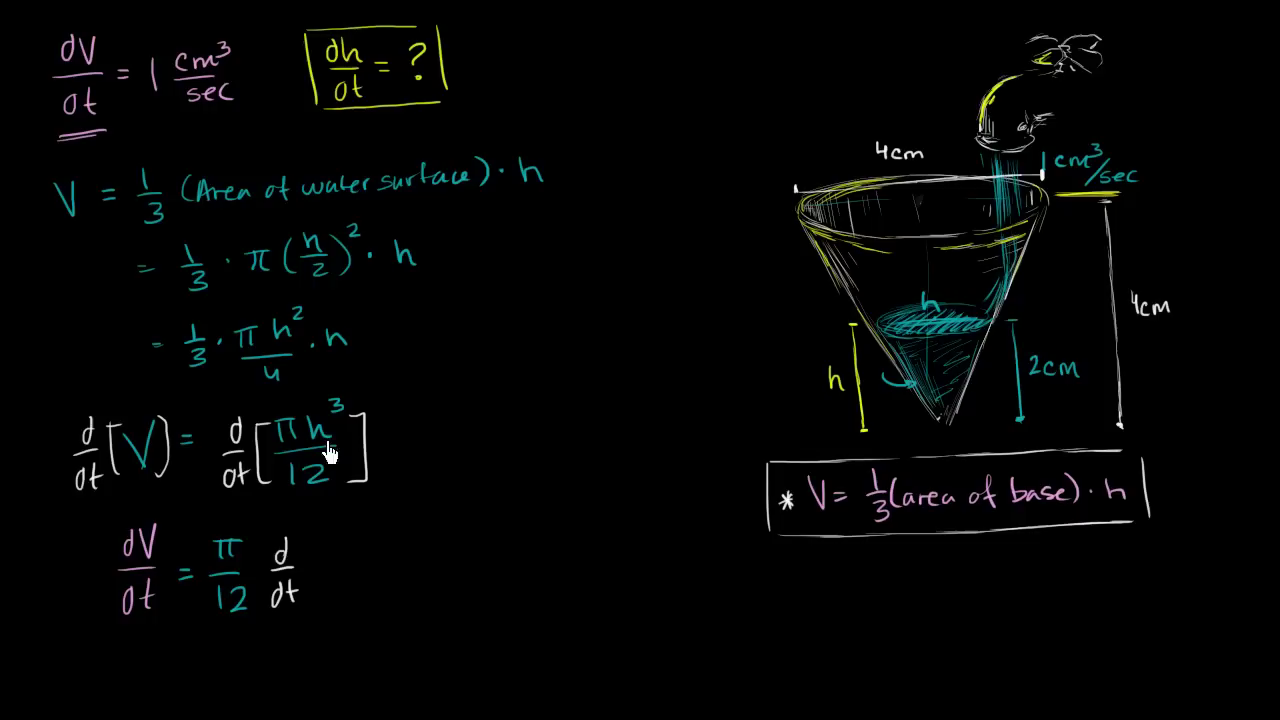 dV/dt = 1 cm³/sec
dh/dt = ?
V = 1/3 (Area of water surface) · h
= 1/3 · π (h/2)² · h
= 1/3 · πh²/4 · h
d/dt [V] = d/dt [πh³/12]
dV/dt = π/12 d/dt
4cm
1 cm³/sec
h
4cm
h
2cm
* V = 1/3 (area of base) · h